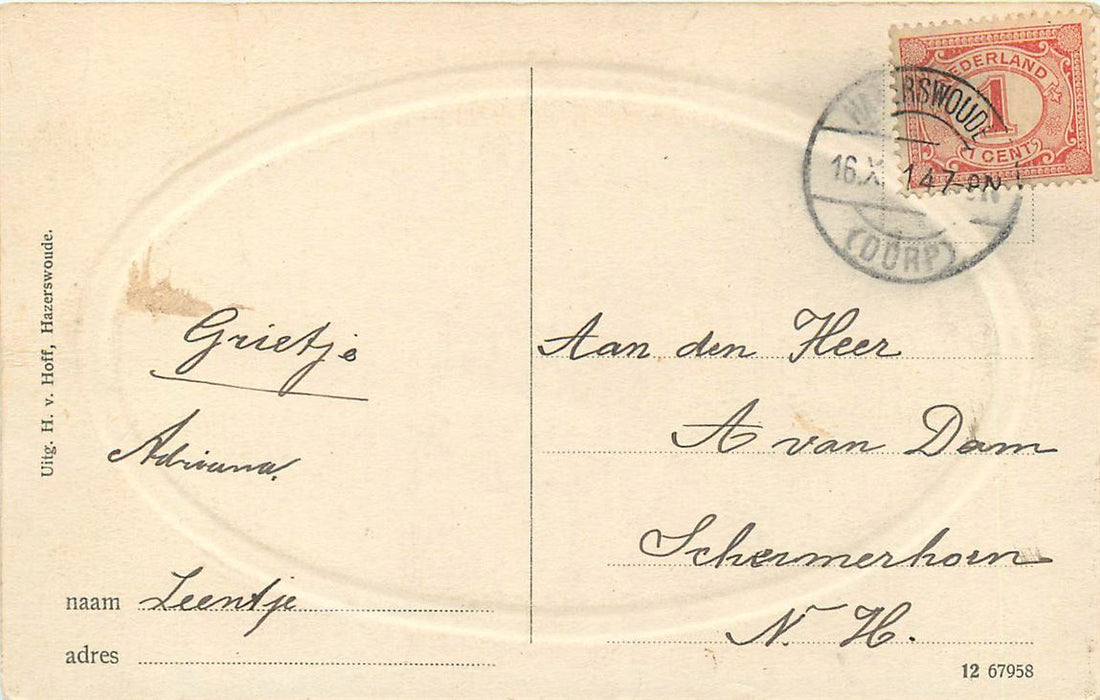 NEDERLAND
1
CENT
HAZERSWOUDE
16.X 14 7-8N
(DORP)
Uitg. H. v. Hoff, Hazerswoude.
Grietje
Adriana.
naam Leentje
adres
Aan den Heer
A van Dam
Schermerhorn
N. H.
12 67958